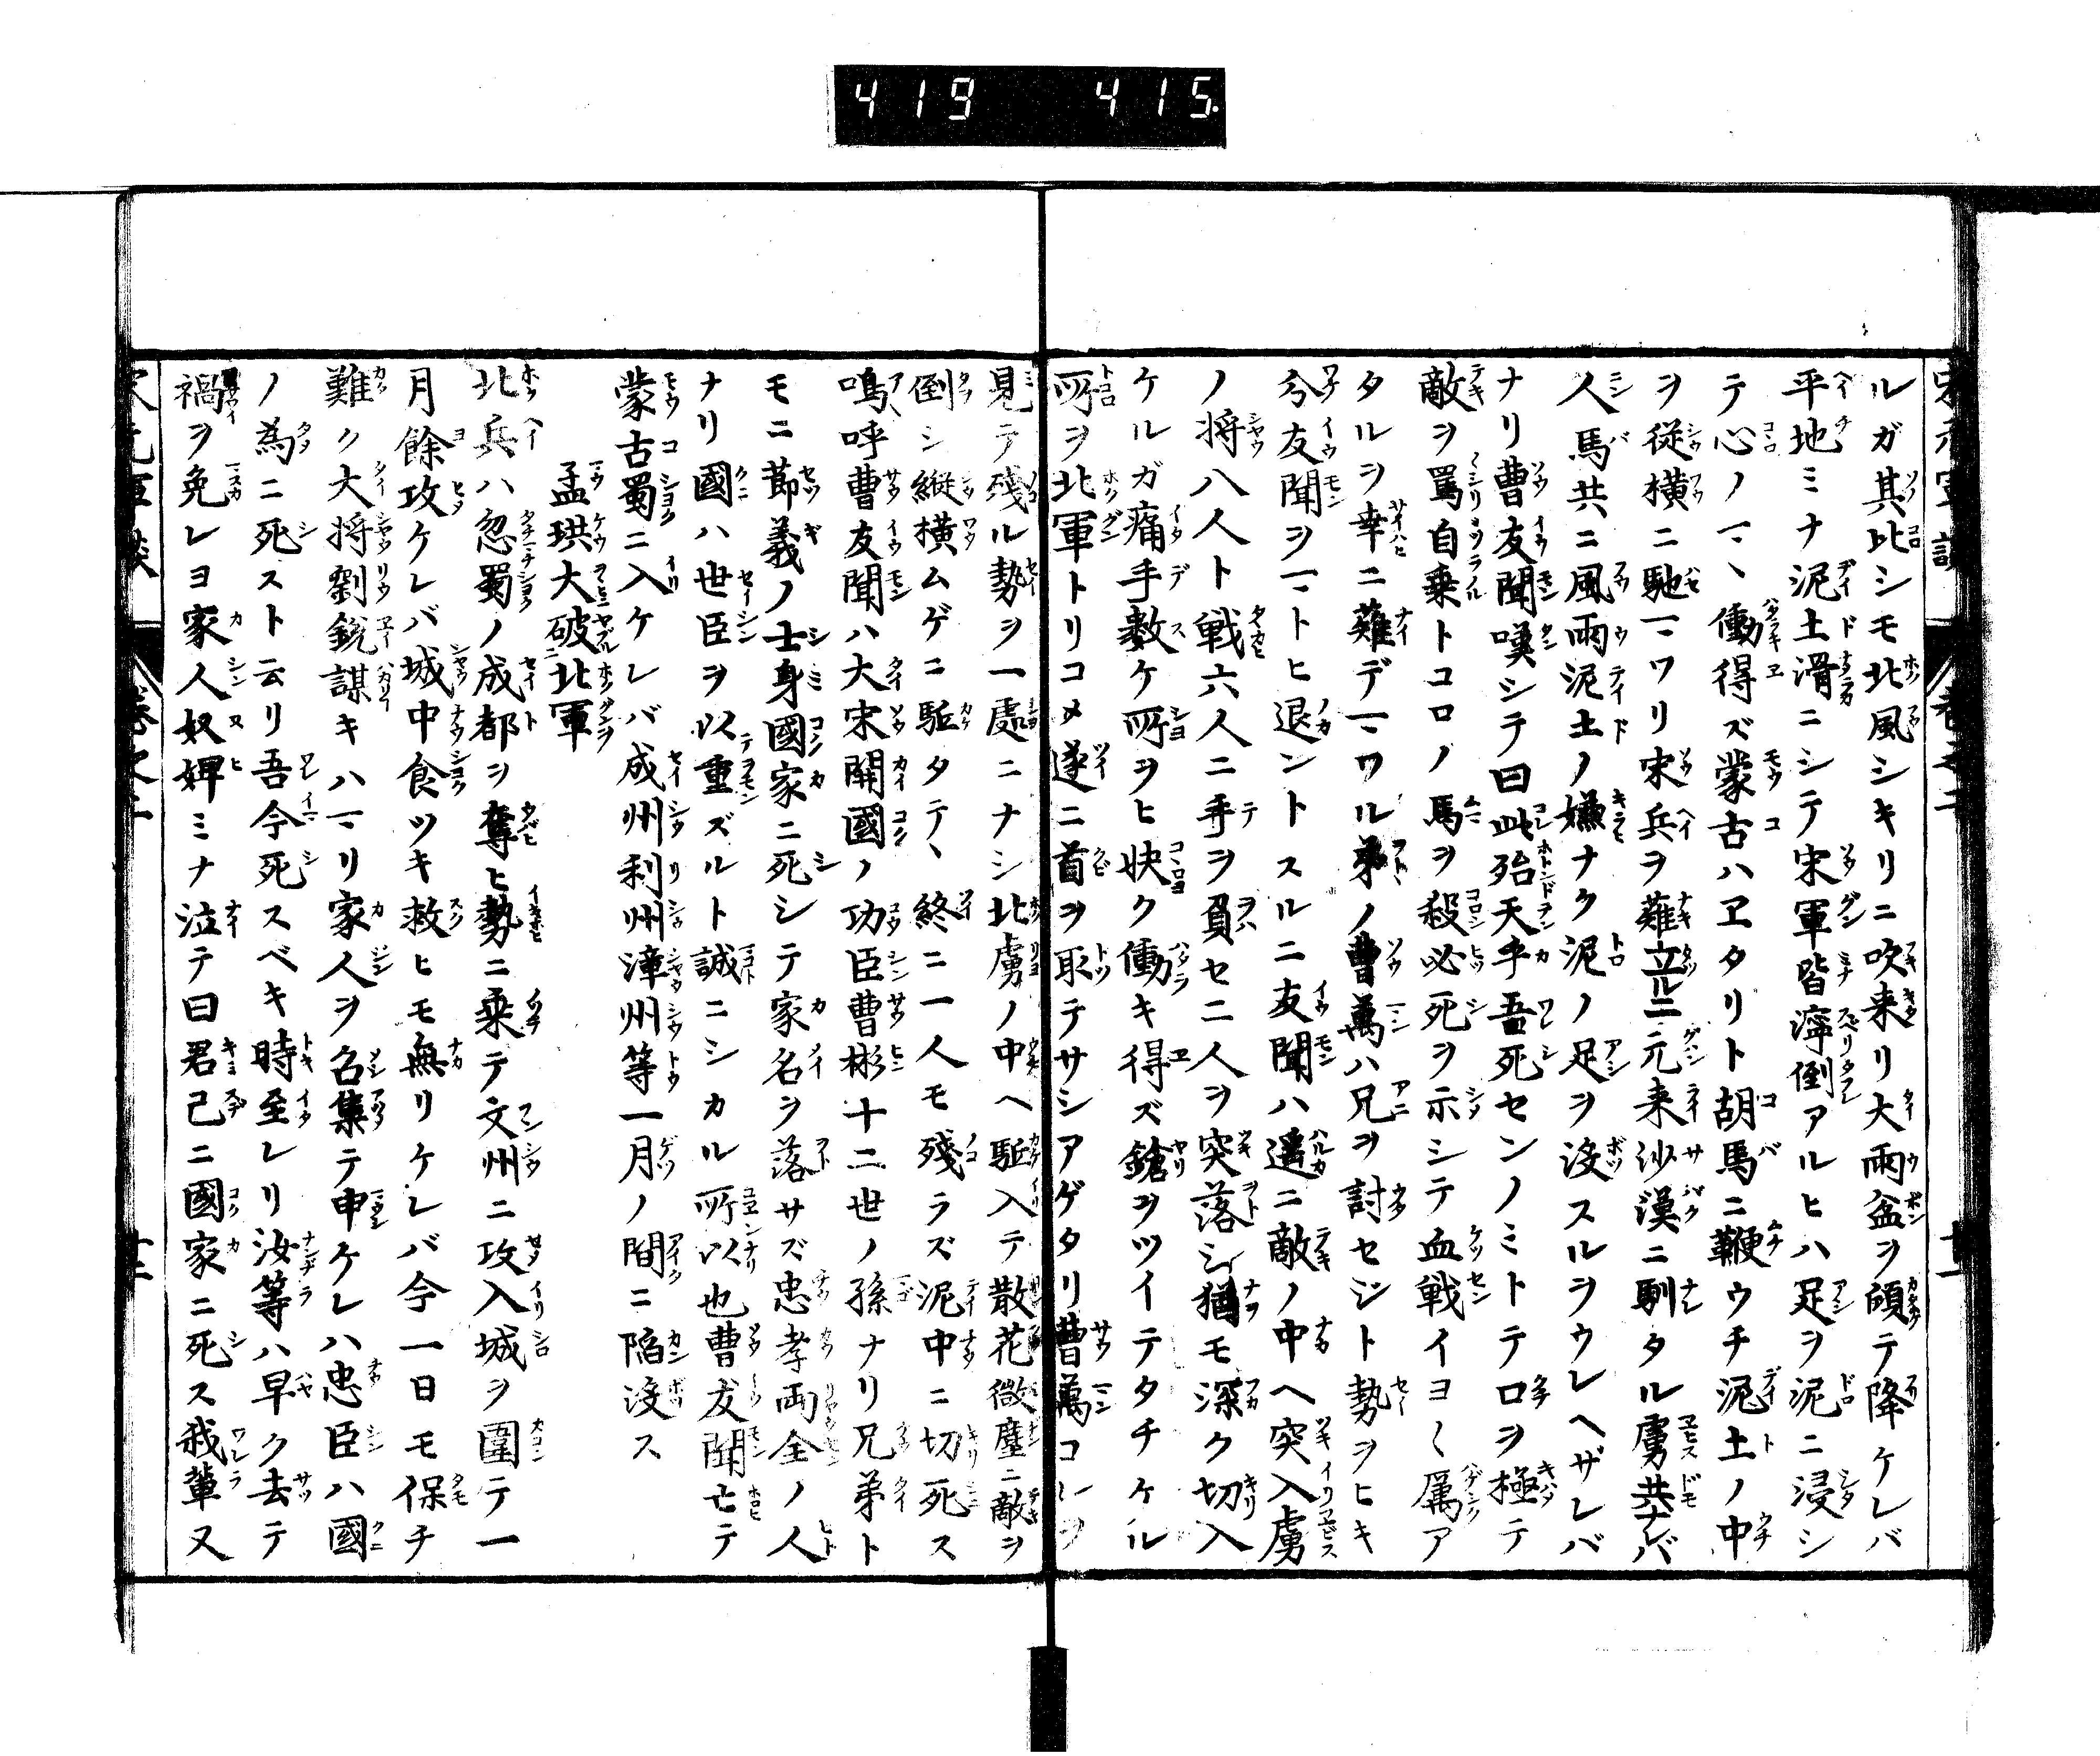 419 415
ルガ其比シモ北風シキリニ吹来リ大雨盆ヲ傾テ降ケレバ
平地ミナ泥土滑ニシテ宋軍皆濘倒アルヒハ足ヲ泥ニ浸シ
テ心ノマヽ働得ズ蒙古ハヱタリト胡馬ニ鞭ウチ泥土ノ中
ヲ従横ニ馳マワリ宋兵ヲ薙立ルニ元来沙漠ニ馴タル虜共ナレバ
人馬共ニ風雨泥土ノ嫌ナク泥ノ足ヲ没スルヲウレヘザレバ
ナリ曹友聞嘆シテ曰此殆天乎吾死センノミトテ口ヲ極テ
敵ヲ罵自乗トコロノ馬ヲ殺必死ヲ示シテ血戦イヨ〱厲ア
タルヲ幸ニ薙デマワル弟ノ曹萬ハ兄ヲ討セジト勢ヲヒキ
分友聞ヲマトヒ退ントスルニ友聞ハ遥ニ敵ノ中ヘ突入虜
ノ将八人ト戦六人ニ手ヲ負セ二人ヲ突落シ猶モ深ク切入
ケルガ痛手数ケ所ヲヒ快ク働キ得ズ鎗ヲツイテタチケル
所ヲ北軍トリコメ遂ニ首ヲ取テサシアゲタリ曹萬コレヲ
見テ残ル勢ヲ一處ニナシ北虜ノ中ヘ駈入テ散花微塵ニ敵ヲ
倒シ縦横ムゲニ駈タテヽ終ニ一人モ残ラズ泥中ニ切死ス
鳴呼曹友聞ハ大宋開國ノ功臣曹彬十二世ノ孫ナリ兄弟ト
モニ節義ノ士身國家ニ死シテ家名ヲ落サズ忠孝両全ノ人
ナリ國ハ世臣ヲ以重ズルト誠ニシカル所以也曹友聞亡テ
蒙古蜀ニ入ケレバ成州利州漳州等一月ノ間ニ陷没ス
孟珙大破北軍
北兵ハ忽蜀ノ成都ヲ奪ヒ勢ニ乗テ文州ニ攻入城ヲ圍テ一
月餘攻ケレバ城中食ツキ救ヒモ無リケレバ今一日モ保チ
難ク大将劉鋭謀キハマリ家人ヲ召集テ申ケレハ忠臣ハ國
ノ為ニ死スト云リ吾今死スベキ時至レリ汝等ハ早ク去テ
禍ヲ免レヨ家人奴婢ミナ泣テ曰君已ニ國家ニ死ス我輩又